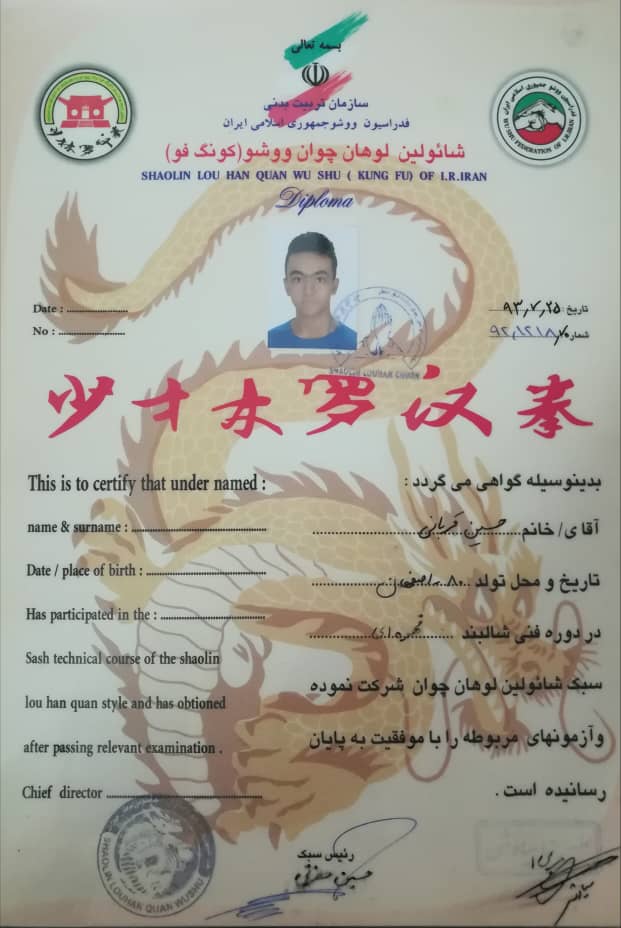 بسمه تعالی
سازمان تربیت بدنی
فدراسیون ووشو جمهوری اسلامی ایران
شائولین لوهان چوان ووشو (کونگ فو)
SHAOLIN LOU HAN QUAN WU SHU ( KUNG FU) OF I.R.IRAN
Diploma
WU SHU FEDERATION OF I.R.IRAN
Date : ....................
No : ......................
تاریخ: ۹۳،۷،۲۵
شماره
SHAOLIN LOUHAN CHUAN
少林罗汉拳
This is to certify that under named :
name & surname : ..........................................
Date / place of birth : .....................................
Has participated in the : ................................
Sash technical course of the shaolin
lou han quan style and has obtioned
after passing relevant examination .
Chief director ................................................
بدینوسیله گواهی می گردد :
آقای/ خانم حسین قربانی
تاریخ و محل تولد ۸۰ - اصفهان
در دوره فنی شالبند قهوه ای
سبک شائولین لوهان چوان شرکت نموده
وآزمونهای مربوطه را با موفقیت به پایان
رسانیده است .
رئیس سبک
SHAOLIN LOUHAN QUAN WUSHU